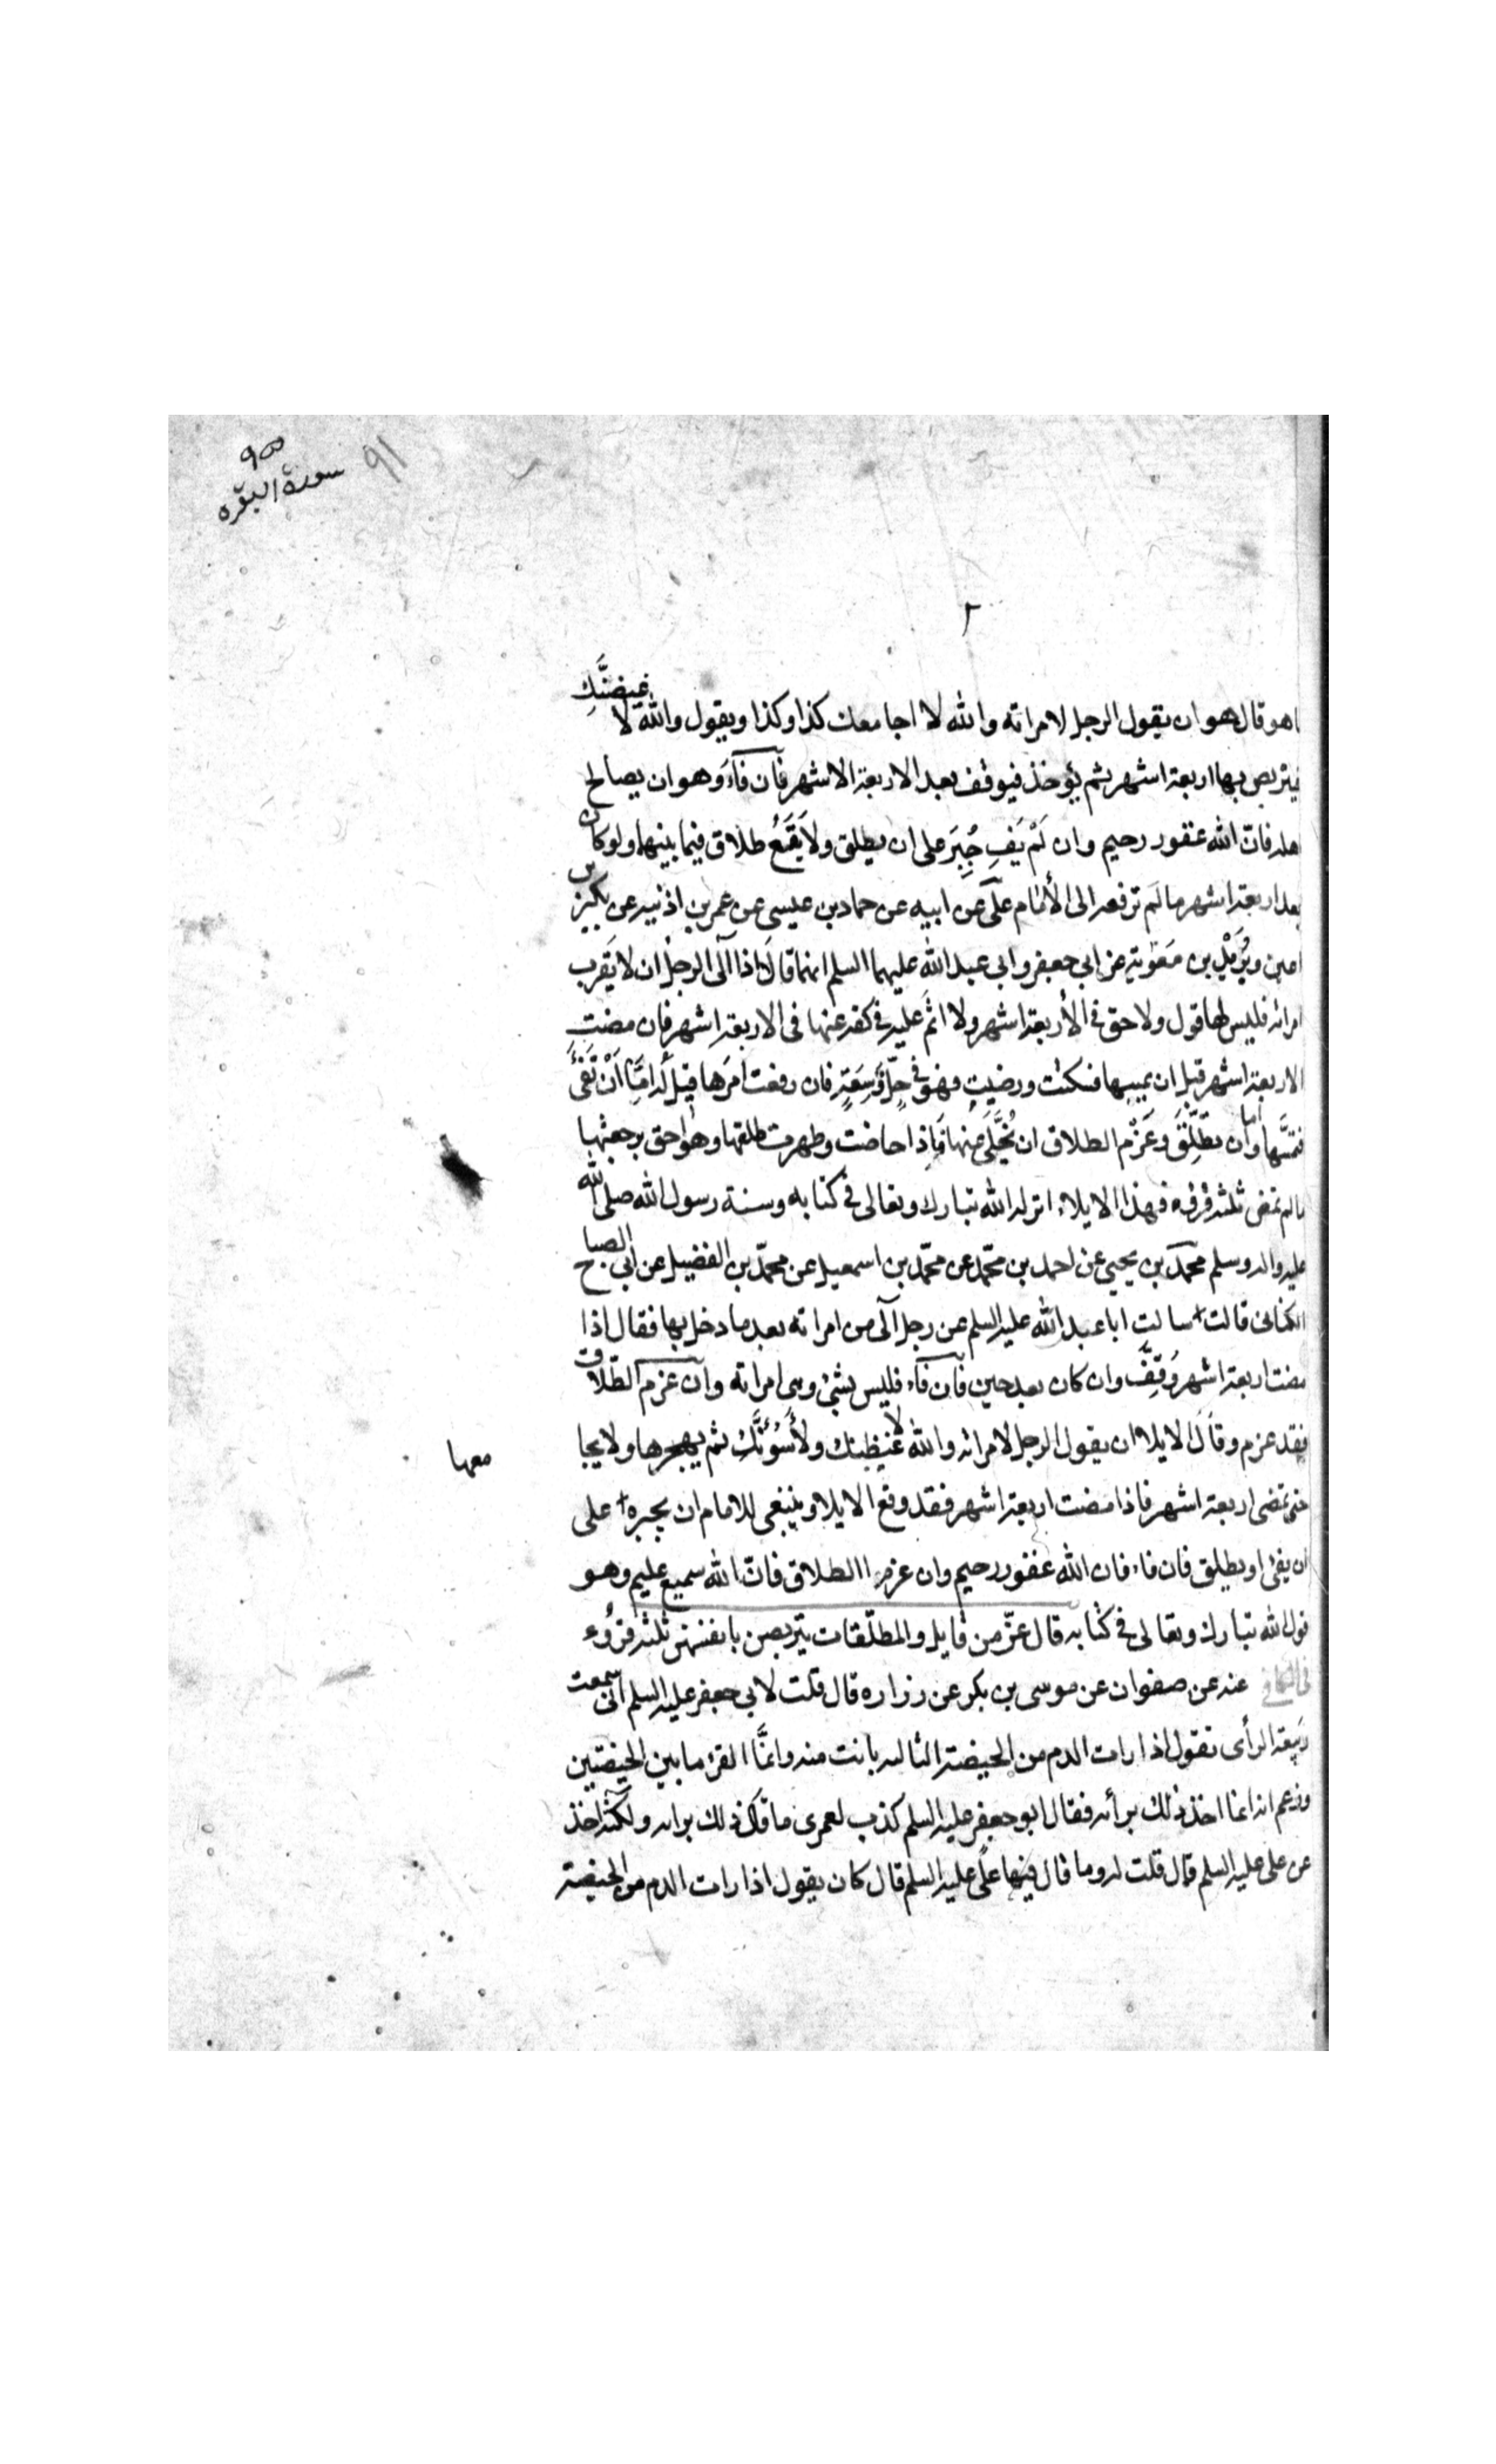 سورة البقره
٩١
٢
ما هو قال هو ان يقول الرجل لامراته والله لا اجامعك كذا وكذا ويقول والله لا غيضنَّكِ
فيتربص بها اربعة اشهر ثم يؤخذ فيوقف بعد الاربعة الاشهر فان فآءَ وهو ان يصالح
اهله فانّ الله غفور رحيم وان لَمْ يَفِ جُبِرَ على ان يطلق ولا يَقَعُ طلاق فيما بينهما ولو كان
بعد اربعة اشهر ما لَم ترفعه الى الأمام علىّ عن ابيه عن حماد بن عيسى عن عمر بن اذنيه عن بكير بن
اعين وبُرَيْدِ بن مَعٰوية عن ابي جعفر وابي عبد الله عليهما السلم انهما قالَا اذا آلَى الرجلُ ان لا يَقرب
امراته فليس لها قول ولا حق في الأربعة اشهر ولا اثم عليه في كفه عنها فى الاربعة اشهر فان مضتِ
الاربعة اشهر قبل ان يمسها فسكتت ورضيت فهو في حِلٍّ وَسِعَةٍ فان رفعت امرَها قيل له امَّا اَنْ تَفئَ
فتمسَّها واما ان تطَلِّقَ وعَزْم الطلاق ان يُخَلَّىَ عنها فَاِذا حاضت وطهرت طلقها وهو احق برجعتها
ما لم تمض ثلثة قروء فهذا الايلاء انزله الله تبارك وتعالى في كتابه وسنة رسول الله صلى الله
عليه واله وسلم محمّد بن يحيى عن احمد بن محّمد عن محّمد بن اسمعيل عن محمّد بن الفضيل عن ابى الصباح
الكنانى قالت سالت ابا عبد الله عليه السلم عن رجل آلى من امراته بعد ما دخل بها فقال اذا
مضت اربعة اشهر وُقِّفَ وان كان بعد حين فان فآء فليس بشئ وهى امراته وان عزم الطّلاق
فقد عزم وقال الايلا ان يقول الرجل لامراته والله لا غيظنك ولأَسُوْئَنَّكَ ثم يهجرها ولا يجا
معها
حتى تمضى اربعة اشهر فاذا مضت اربعة اشهر فقد وقع الايلا وينبغى للامام ان يجبره على
ان يفئ او يطلق فان فاء فان الله غفور رحيم وان عزموا الطلاق فانّ الله سميع عليم وهو
قول الله تبارك وتعالى في كتابه قال عزّ من قايل والمطلّقات يتربصن بانفسهن ثلثة قروُء
فى الكافي عنه عن صفوان عن موسى بن بكر عن زراره قال قلت لابى جعفر عليه السلم انى سمعت
ربيعة الرأى يقول اذا رات الدم من الحيضة الثالثه بانت منه وانَّما القرء ما بين الحيضتين
وزعم انه انما اخذ ذلك برأيه فقال ابو جعفر عليه السلم كذب لعمرى ما قال ذلك برايه ولكنّه اخذه
عن على عليه السلم قال قلت له وما قال فيها علىّ عليه السلم قال كان يقول اذا رات الدم من الحيضة